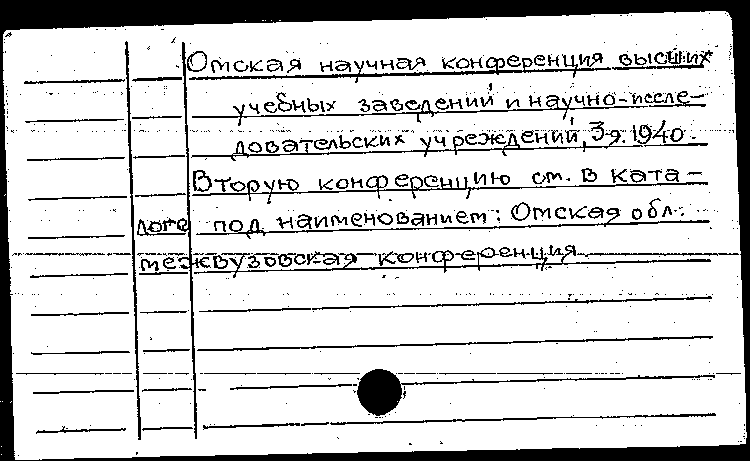 Омская научная конференция высших
учебных заведений и научно-иссле-
довательских учреждений, 3я. 1940.
Вторую конференцию см. в ката-
логе под наименованием: Омская обл.
межвузовская конференция